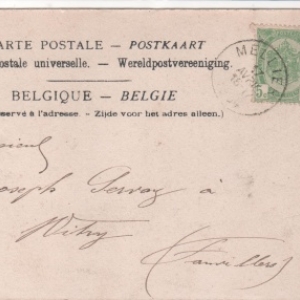 ARTE POSTALE — POSTKAART
ostale universelle. — Wereldpostvereeniging.
BELGIQUE — BELGIE
servé à l'adresse. – Zijde voor het adres alleen.)
MELLIE
sieur
oseph Servay à
Witry
(Fauvillers)